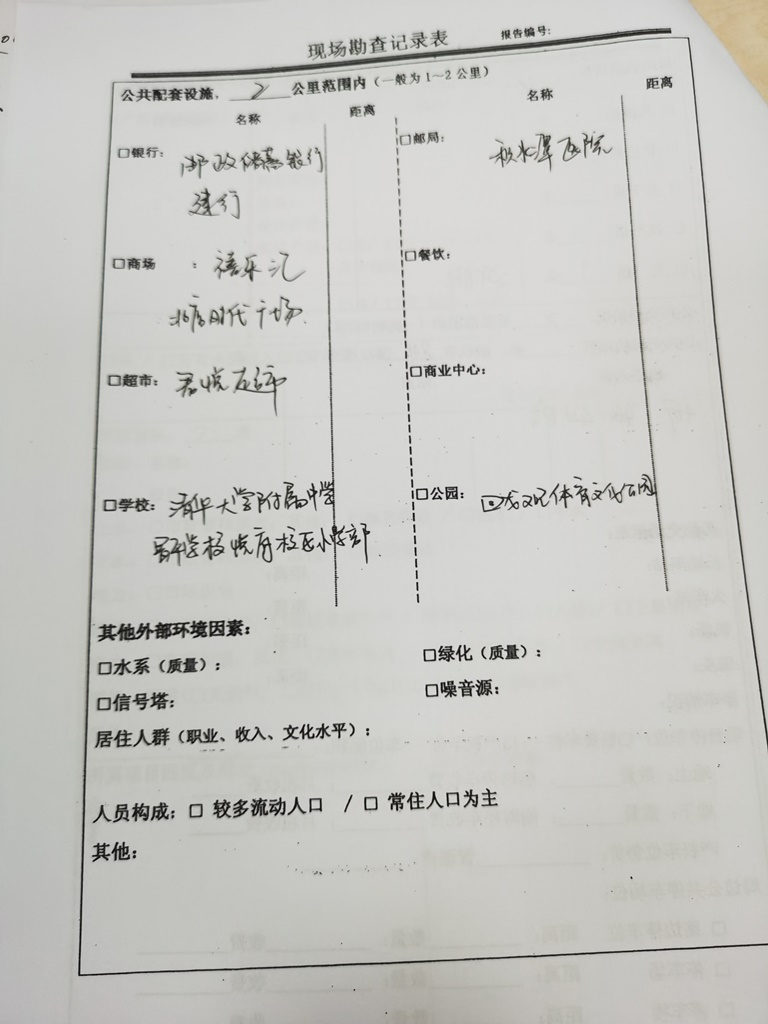 现场勘查记录表
报告编号:
公共配套设施, 2 公里范围内（一般为1~2公里）
名称 距离 名称 距离
□银行: 邮政储蓄银行
建行
□邮局: 积水潭医院
□商场 : 禧乐汇
时代广场
□餐饮:
□超市:
□商业中心:
□学校: 清华大学附属中学
学校悦府校区小学部
□公园: 体育文化公园
其他外部环境因素:
□水系（质量）: □绿化（质量）:
□信号塔: □噪音源:
居住人群（职业、收入、文化水平）:
人员构成: □ 较多流动人口 / □ 常住人口为主
其他: